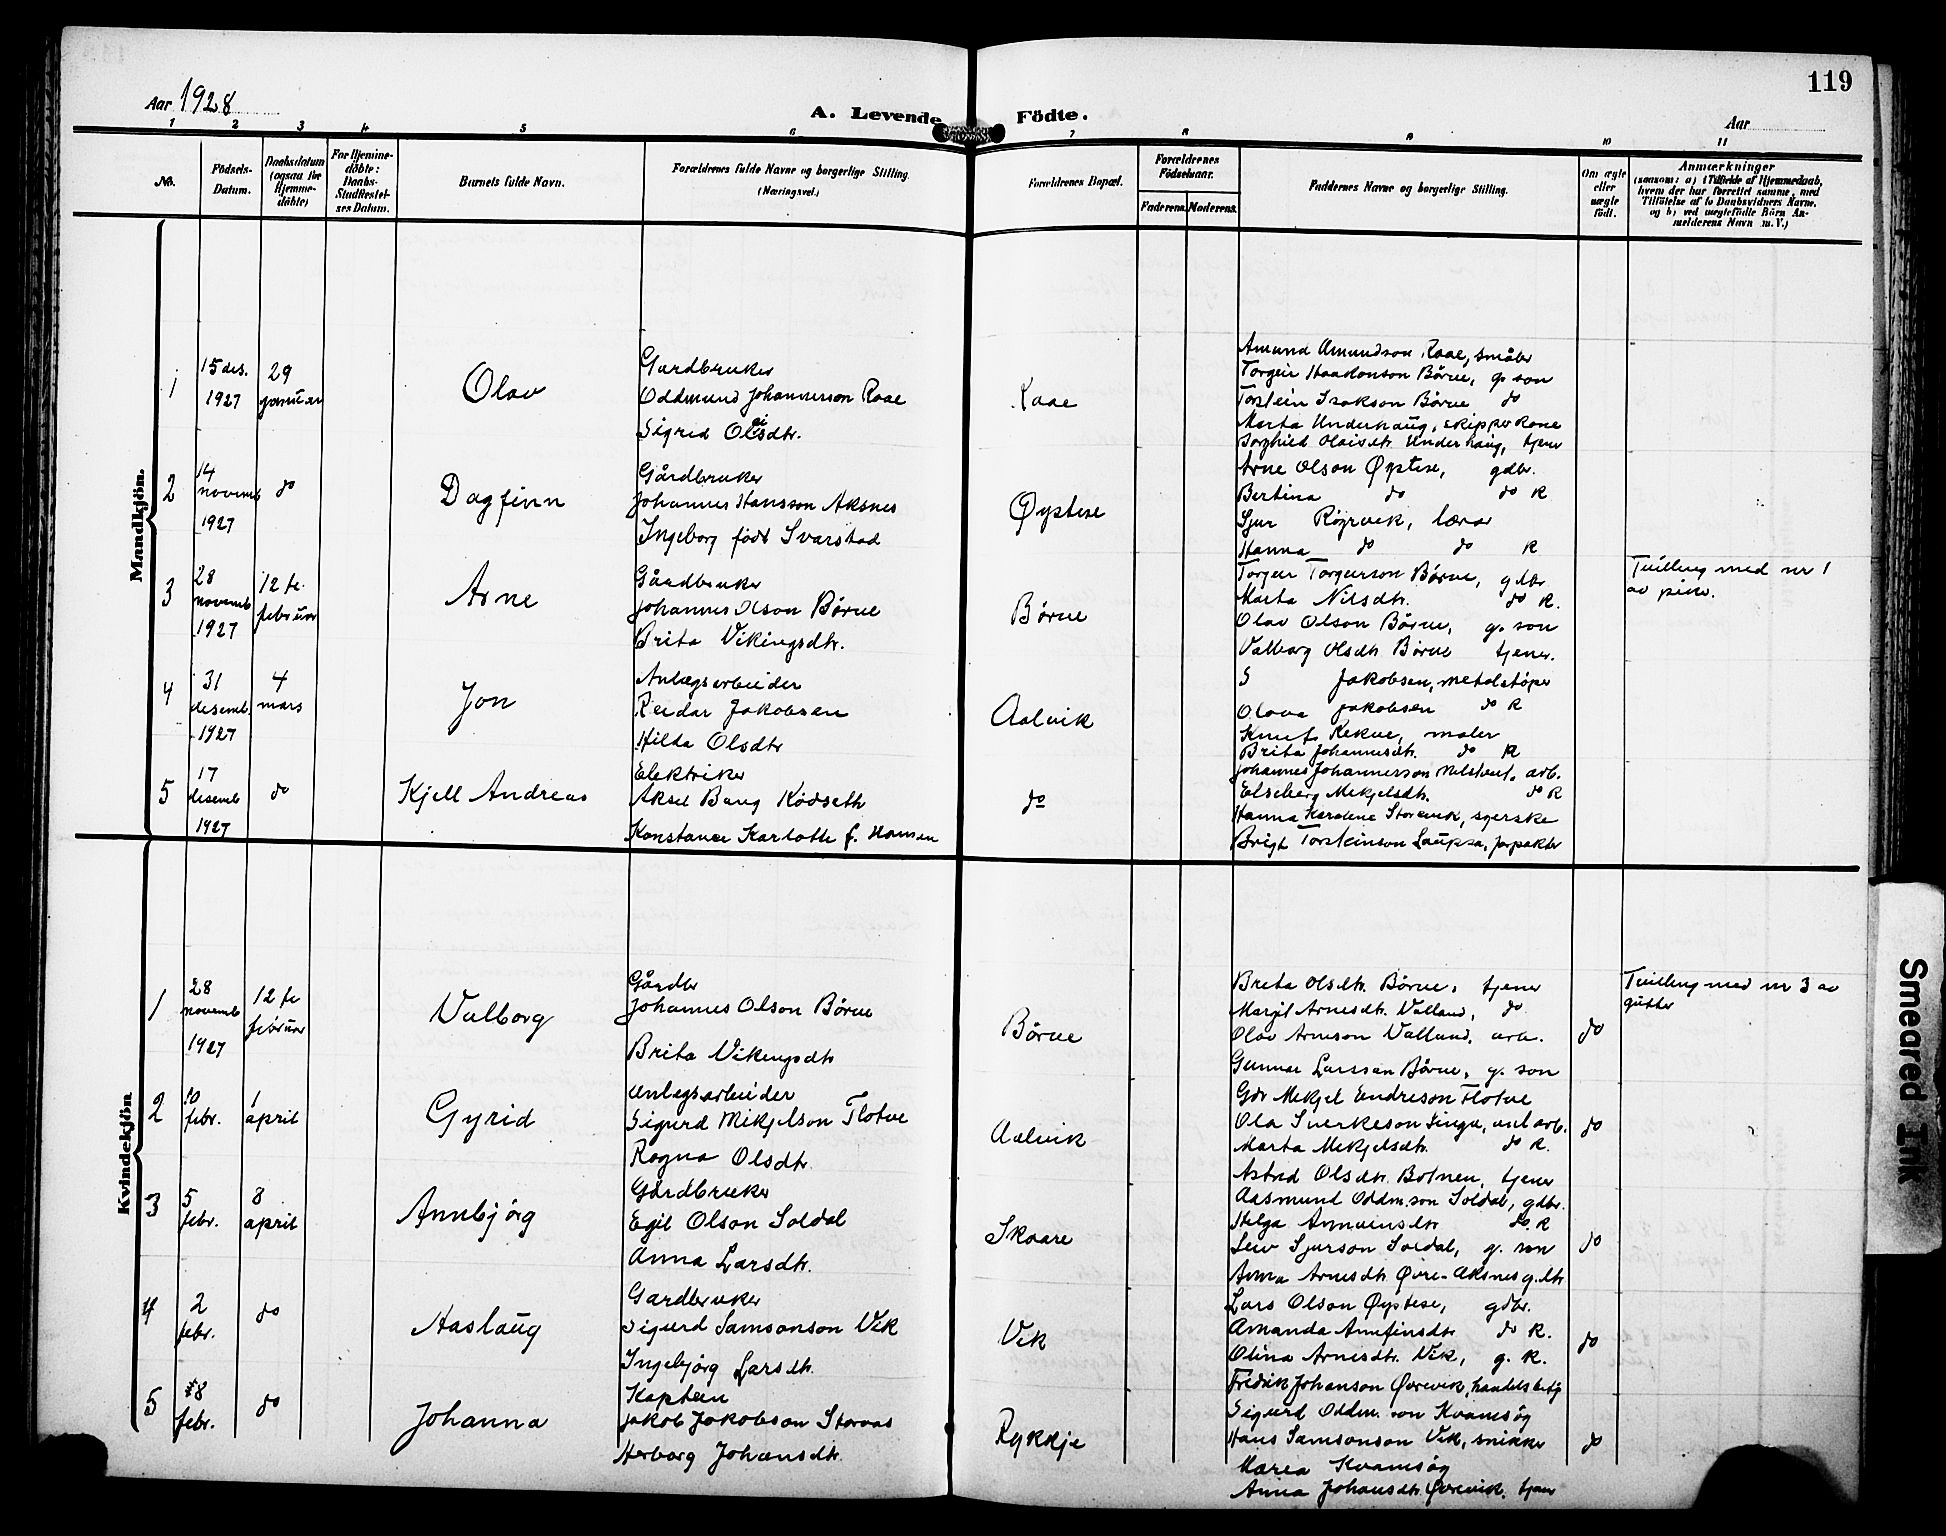 119
Aar 1928
A. Levende Födte.
Aar
1 2 3 4 5 6 7 8 9 10 11
No.
Födsels-Datum.
Daabsdatum (ogsaa for Hjemme-döbte)
For Hjemme-döbte: Daabs-Stadfæstel-ses Datum.
Barnets fulde Navn.
Forældrenes fulde Navne og borgerlige Stilling. (Næringsvei.)
Forældrenes Bopæl.
Forældrenes Födselsaar.
Faderens. Moderens.
Faddernes Navne og borgerlige Stilling.
Om ægte eller uægte født.
Anmærkninger
(saasom: a) i Tilfælde af Hjemmedaab, hvem der har forrettet samme, med Tilføielse af to Daabsvidners Navne, og b) ved uægtefødte Börn An-melderens Navn m.V.)
Mandkjön.
1
15 des. 1927
29 januar
Olav
Gardbruker
Oddmund Johannesson Raae
Sigrid Olsdtr.
Raae
Amund Amundson Raae, småbr
Torgeir Haakonson Börve, g. son
Torstein Isakson Börve do
Marta Underhaug, skipperkone
Borghild Olaisdtr. Underhaug, tjener
2
14 novemb 1927
do
Dagfinn
Gårdbruker
Johannes Hansson Aksnes
Ingeborg født Svarstad
Øystese
Arne Olson Øystese, gdbr.
Bertina do do K
Sjur Røyrvik, lærar
Hanna do do K
3
28 novemb 1927
12 te februar
Arne
Gårdbruker
Johannes Olson Børve
Brita Vikingsdtr.
Børve
Torgeir Torgeirson Børve, gdbr
Marta Nilsdtr. do K.
Olav Olson Børve, g. son
Valborg Olsdtr. Børve tjener.
Tvilling med nr 1 av piker.
4
31 desemb. 1927
4 mars
Jon
Anlægsarbeider
Reidar Jakobsen
Hilda Olsdtr
Aalvik
S Jakobsen, metalstøper
Olava Jakobsen do K
Knut Rekve, maler
Brita Johannesdtr. do K
5
17 desemb 1927
do
Kjell Andreas
Elektriker
Aksel Bang Rødseth
Konstance Karlotte f. Hansen
do
Johannes Johannesson, arb.
Elseberg Mikjelsdtr. do K
Hanna Karoline Storevik, syerske
Brigt Torsteinson Laupsa, forpakter
Kvindekjön
1
28 novemb 1927
12 te februar
Valborg
Gårdbr
Johannes Olson Børve
Brita Vikingsdtr
Børve
Brita Olsdtr. Børve, tjener
Margit Arnesdtr. Valland, do
Olav Arneson Valland, arb.
Gunnar Larsson Børve, g. son
do
Tvilling med nr 3 av gutter
2
10 febr.
1 april
Gyrid
Anlegsarbeider
Sigurd Mikjelson Flotve
Ragna Olsdtr.
Aalvik
Gdr Mikjel Endreson Flotve
Ola Sverkeson, anl.arb.
Marta Mikjelsdtr. do K.
Astrid Olsdtr. Botnen, tjener
do
3
5 febr.
8 april
Annbjörg
Gårdbruker
Egil Olson Soldal
Anna Larsdtr.
Skaare
Aasmund Oddm.son Soldal, gdbr.
Helga do. K
Leiv Sjurson Soldal, g. son
Anna Arnesdtr. Øvre-Aksnes g.dtr
do
4
2 febr.
do
Aaslaug
Gardbruker
Sigurd Samsonson Vik
Ingebjørg Larsdtr.
Vik
Lars Olson Øystese, gdbr.
Amanda Arnfinsdtr do K.
Olina Arnesdtr. Vik, g. K.
Fredrik Johanson Øvrevik, handelsbetj
do
5
8 febr.
do
Johanna
Kaptein
Jakob Jakobson Storaas
Herborg Johansdtr.
Rykkje
Sigurd Oddm. son Kvamsøy
Hans Samsonson Vik, snikker
Marea Kvamsøy
Anna Johansdtr. Øvrevik, tjener
do
Smeared Ink